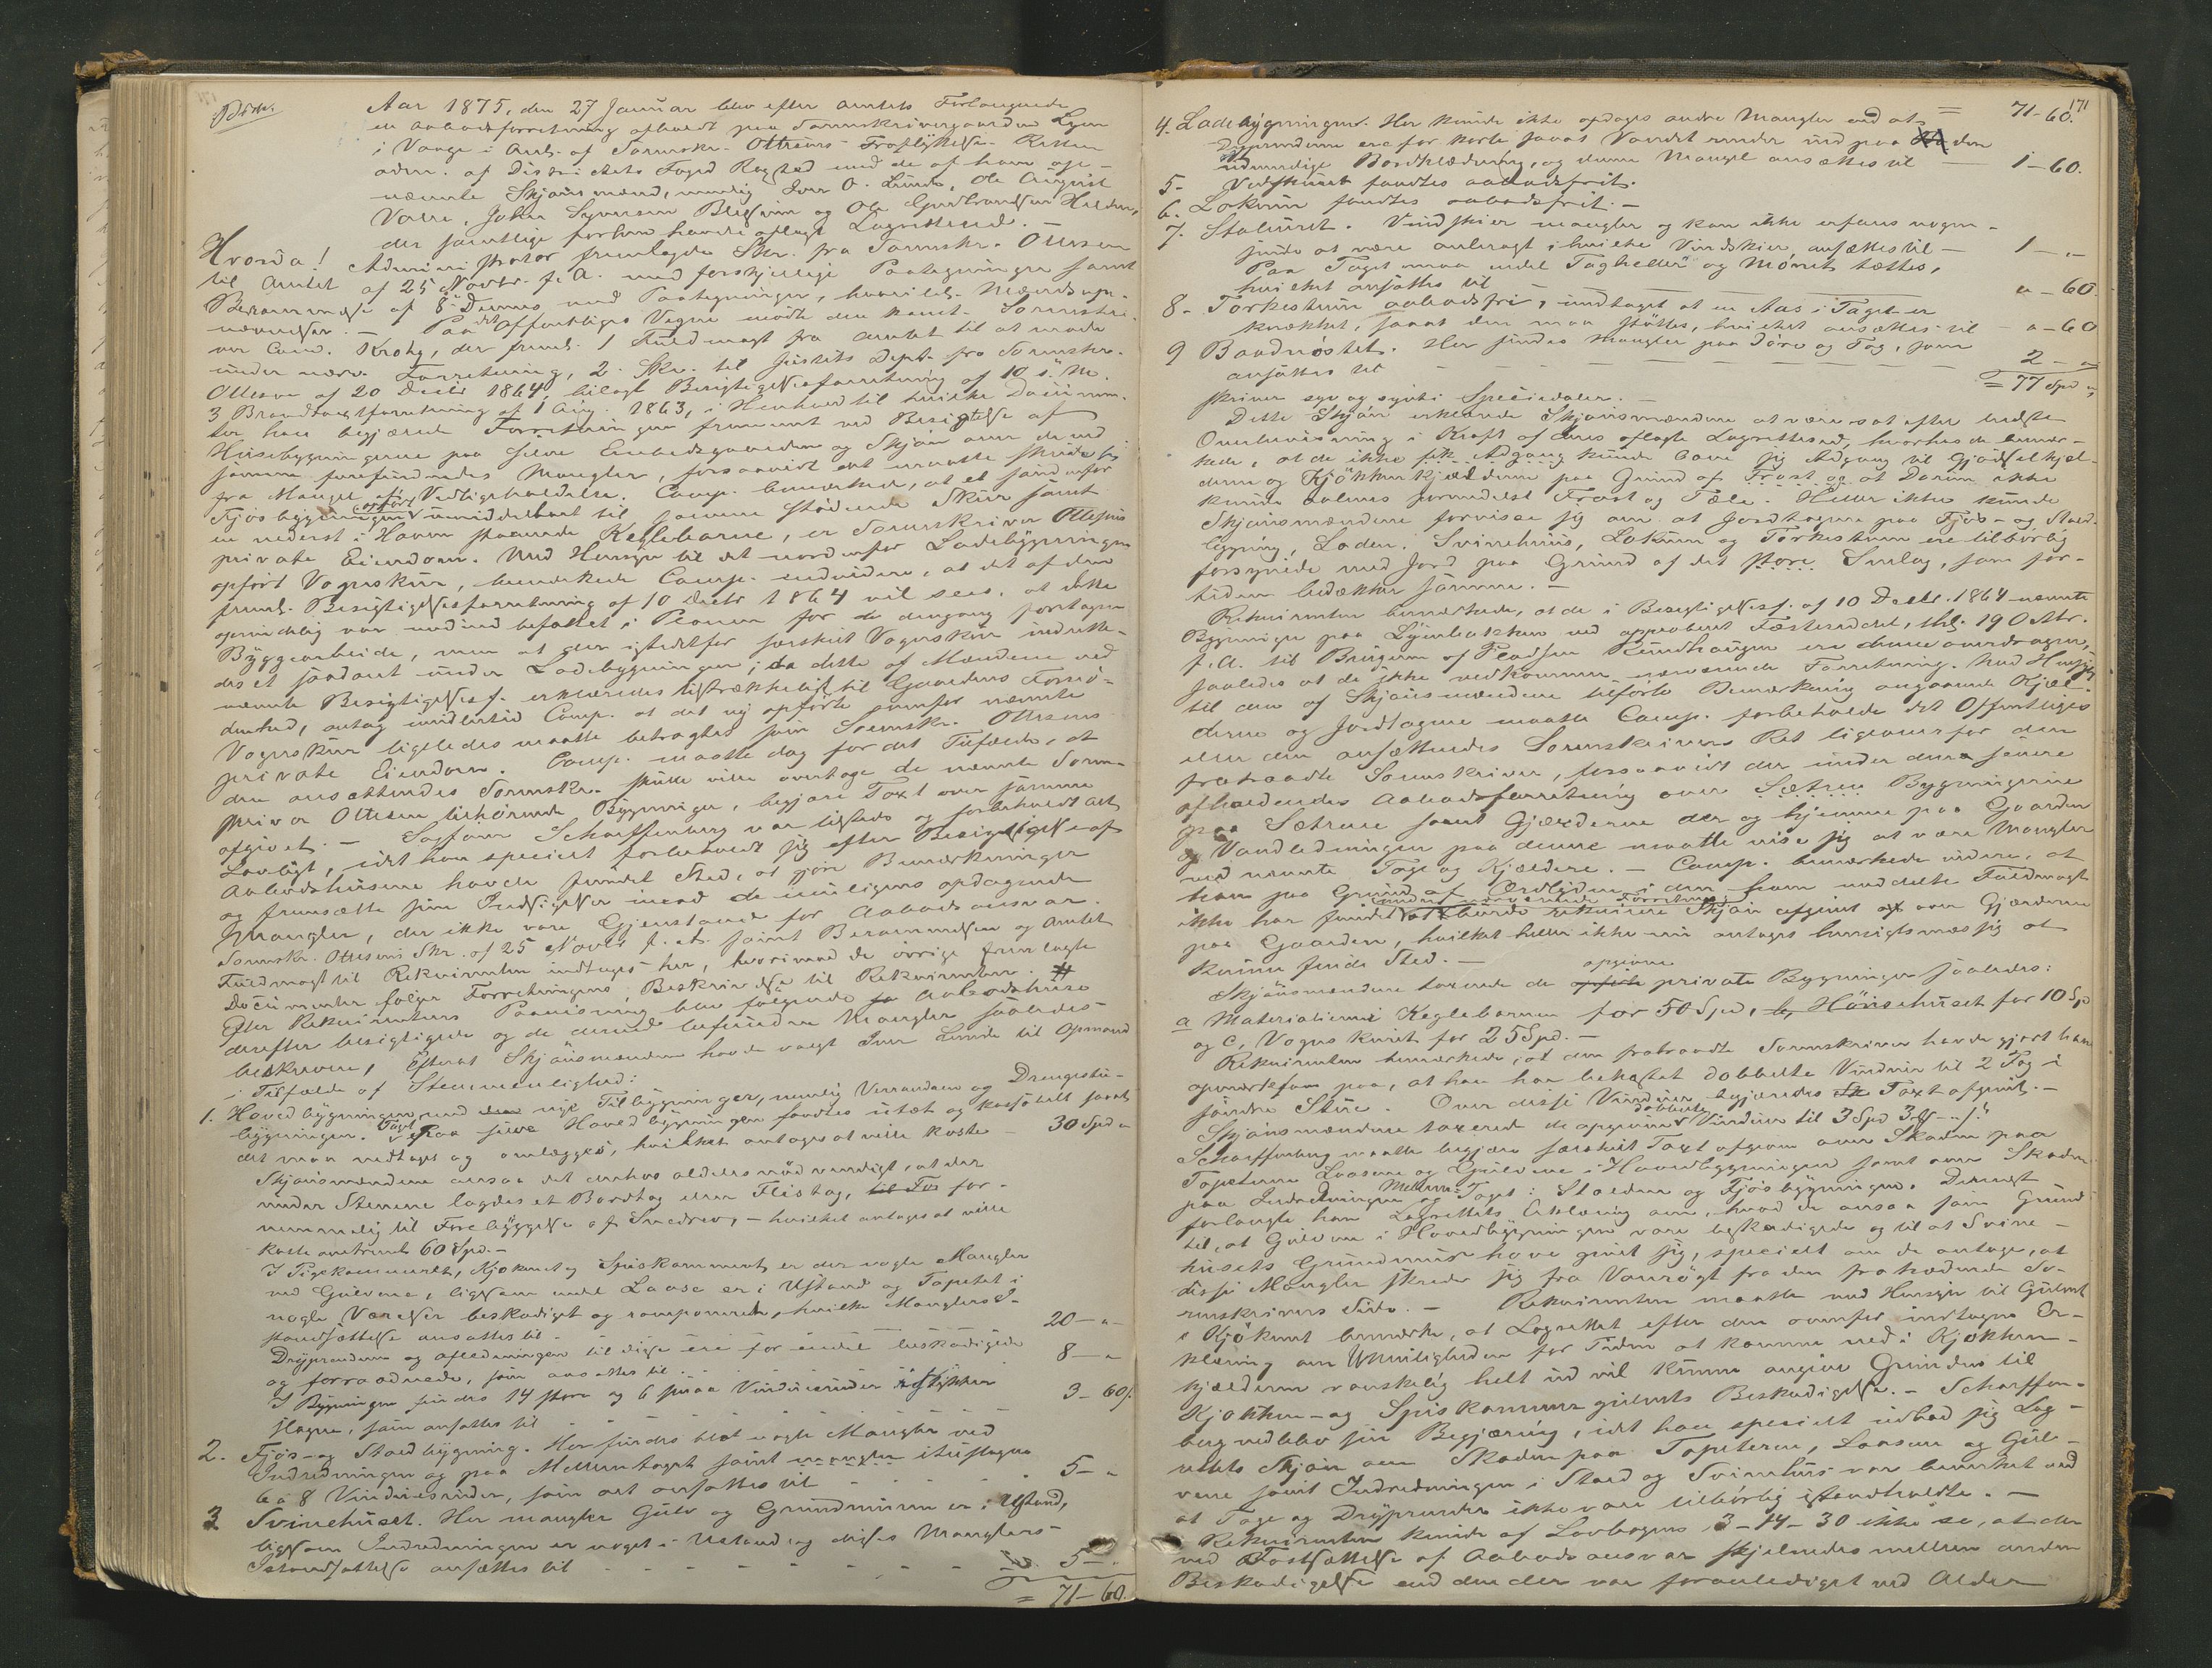 Aar 1875, den 27 Januar blev efter Amtets Forlangende
en Aabodsforretning afholdt paa Sorenskrivergaarden
i Vaage i Anl. af Sorenskr. Ottesens Fraflyttelse. Retten
adm. af Distriktets Foged med de af ham op-
nævnte Skjønsmænd, nemlig Iver O. Lunde, Ole August
Valle, Syversen og Ole Gudbrandsen
der samtlige forhen havde aflagt Lagretteed. -
Hvorda! Administrator fremlagde Skr. fra Sorenskr. Ottesen
til Amtet af 25 Novbr. f. A. med forskjellige Paategninger samt
Berammelse af 8 Dennes med Paategninger, Mænds op-
nævnelser. - Paa det Offentliges Vegne mødte den konst. Sorenskri-
ver Cand. Krohg, der freml. 1 Fuldmagt fra Amtet til at møde
under nærv. Forretning, 2. Skr. til Justits Dept. fra Sorenskr.
Ottesen af 20 Decbr 1864, bilagt Besigtigelsesforretning af 10 s. M.
3 Brandtaxtforretning af 1 Aug. 1863, i Henhold til hvilke Documen-
ter han begjærede Forretningen fremmet ved Besigtelse af
Husebygningerne paa selve Embedsgaarden og Skjøn over de ved
samme forefindendes Mangler, forsaavidt det maatte skrive sig
fra Mangel af Vedligeholdelse. Comp. bemærkede, at et søndenfor
Fjøsbygningen opført umiddelbart til samme stødende Skur samt
en nederst i Haven staaende Keglebane, er Sorenskriver Ottesens
private Eiendom. Med Hensyn til det nordenfor Ladebygningen
opført Vognskur, bemærkede Comp. endvidere, at det af den
freml. Besigtigelsesforretning af 10 Decbr 1864 vil sees, at dette
oprindelig var indbefattet i Planen for de dengang foretagne
Byggearbeide, men at der istedetfor særskilt Vognskur indrette-
des et saadant under Ladebygningen; da dette af Mændene ved
nævnte Besigtigelsesf. erklæredes tilstrækkeligt til Gaardens Fornø-
denhed, antog imidlertid Comp. at det ny opførte ovenfor nævnte
Vognskur ligeledes maatte betragtes som Sorenskr. Ottesens
private Eiendom. Comp. maatte dog for det Tilfælde, at
den ansættendes Sorenskr. skulle ville overtage de nævnte Soren-
skriver Ottesen tilhørende Bygninger, begjære Taxt over samme
afgivet. - Sagfører Scharffenberg var tilstede og forbeholdt alt
Lovligt, idet han specielt forbeholdt sig efter Besigtigelse af
Aabodshusene havde fundet Sted, at gjøre Bemærkninger
og fremsætte sine Indsigelser imod de muligens opdagende
Mangler, der ikke vare Gjenstand for Aabods ansvar.
Sorenskr. Ottesens Skr. af 25 Novbr f. A. samt Berammelsen og Amtets
Fuldmagt til Rekvirenten indtages her, hvorimod de øvrige fremlagte
Documenter følger Forretningens Beskrivelse til Rekvirenten. #
Efter Rekvirentens Paavisning blev følgende Aabodshuse
derefter besigtigede og de derved befundne Mangler saaledes
beskrevne, Efterat Skjønsmændene havde valgt Iver Lunde til Opmand
i Tilfælde af Stemmenlighed:
1. Hovedbygningen med nye Tilbygninger, nemlig Verandaen og Drengestu-
bygningen. Taget paa selve Hovedbygningen fandtes utæt og kassabelt saavel
det maa nedtages og omlægges, hvilket antages at ville koste - 30 Spd „
Skjønsmændene ansaa det derhos aldeles nødvendigt, at der
under Stenene lagdes et Bordtag eller Flistag, for-
nemmelig til Forebyggelse af Snedrev, - hvilket antages at ville
koste omtrent 60 Spd. -
I Pigekammeret, Kjøkkenet og Spiskammeret er der nogle Mangler
ved Gulvene, ligesom endel Laase er i Ustand og Tapetet i
nogle Værelser beskadiget og ramponeret, hvilke Manglers I-
standsættelse ansættes til - 20 - „ -
Drypranderne og afledningen til disse ere for endel beskadigede
og forraadnede, som ansættes til - 8 - „
I Bygningen findes 14 store og 6 smaa Vinduesruder istykker
slagne, som ansættes til - 3 - 60 s.
2. Fjøs- og Staldbygning. Her findes blot nogle Mangler ved
Indredningen og paa Mellemtaget samt mangler ituslagne
6 a 8 Vinduesruder, som alt ansættes til - 5 - „
3 Svinehuset. Her mangler Gulv og Grundmuren er i Ustand,
ligesom Indredningen er noget i Ustand, og disses Manglers
Istandsættelse ansættes til - 5 - „
= 71 - 60.
171
= 71-60.
4. Ladebygningen. Her kunde ikke opdages andre Mangler end at
Dryprenderne ere for korte saaat Vandet render ind paa den
udvendige Bordklædning, og denne Mangel ansættes til - 1 - 60.
5 - Vedskuret fandtes aabodsfrit.
6. Lokum fandtes aabodsfrit. -
7. Staburet. Vindskier mangler og kan ikke erfares nogen-
sinde at være anbragt, hvilke Vindskier ansættes til - 1 - „ -
Paa Taget maa endel Tagheller og Mønet tættes,
hvilket ansættes til „ - 60
8 - Tørkestuen aabodsfri, undtaget at en Aas i Taget er
knækket, saaat den maa støttes, hvilket ansættes til - „ - 60
9 Baadnøstet. Her findes Mangler paa Døre og Tag, som
ansættes til - 2 - „
= 77 Spd „
skriver syv og sytti Speciedaler. -
Dette Skjøn erklærede Skjønsmændene at være sat efter bedste
Overbevisning i Kraft af deres aflagte Lagretteeed, hvorhos de bemær-
kede, at de ikke fik Adgang kunde have sig Adgang til Gjødselkjæl-
deren og Kjøkkenkjælderen paa Grund af Frost og at Døren ikke
kunde aabnes formedelst Frost og Tæle. Heller ikke kunde
Skjønsmændene forvisse sig om at Jordtagene paa Fjøs- og Stald-
bygning, Laden, Svinehuus, Lokum og Tørkestuen ere tilbørlig
forsynede med Jord paa Grund af det store Snelag, som for-
tiden bedækker samme. -
Rekvirenten bemærkede, at de i Besigtigelsesf. af 10 Decbr. 1864 nævnte
Bygninger paa ved approberet Fæsteseddel, thl. 19 Oktbr.
f. A. til Brugeren af Pladsen ere denne overdragne,
saaledes at de ikke vedkommer nærværende Forretning. Med Hensyn
til den af Skjønsmændene tilførte Bemærkning angaaende Kjæl-
derne og Jordtagene maatte Comp. forbeholde det Offentliges
eller den ansættendes Sorenskrivers Ret ligeoverfor den
fratraadte Sorenskriver, forsaavidt der under den senere
afholdendes Aabodsforretning over Sætren Bygningerne
paa Sætrene samt Gjærderne der og hjemme paa Gaarden
og Vandledningen paa denne maatte vise sig at være Mangler
ved nævnte Tage og Kjældere. - Comp. bemærkede videre, at
han paa Grund af Ordlyden i den ham meddelte Fuldmagt
ikke har fundet under nærværende Forretning at burde rekvirere Skjøn afgivet over Gjærderne
paa Gaarden, hvilket heller ikke nu antages hensigtsmæssig at
kunne finde Sted. -
Skjønsmændene taxerede de opgivne private Bygninger saaledes:
a Materialierne i Keglebanen for 50 Spd, b, Hønsehuset for 10 Spd
og c, Vognskuret for 25 Spd. -
Rekvirenten bemærkede, at den fratraadte Sorenskriver havde gjort ham
opmærksom paa, at han har bekostet dobbelte Vinduer til 2 Fag i
søndre Stue. Over disse Vinduer begjæredes Taxt afgivet. -
Skjønsmændene taxerede de opgivne dobbelte Vinduer til 3 Spd 3 -"-.
Scharffenberg maatte begjære særskilt Taxt afgiven over Skaden paa
Tapeterne Laasene og Gulvene i Hovedbygningen samt over Skaden
paa Indredningen og Mellem-Taget i Stalden og Fjøsbygningen. Dernæst
forlangte han Lagrettets Erklæring om, hvad de ansaa som Grund
til, at Gulvene i Hovedbygningen vare beskadigede og til at Svine-
husets Grundmur have givet sig, specielt om de antage, at
disse Mangler skriver sig fra Vanrøgt fra den fratrædende So-
renskrivers Side. - Rekvirenten maatte med Hensyn til Gulvet
i Kjøkkenet bemærke, at Lagrettet efter den ovenfor indtagne Er-
klæring om Umuligheden for Tiden at komme ned i Kjøkken-
kjælderen vanskelig helt ud vil kunne angive Grunden til
Kjøkken- og Spiskammergulvets Beskadigelse. - Scharffen-
berg vedblev sin Begjæring, idet han specielt udbad sig Lag-
rettets Skjøn om Skaden paa Tapeterne, Laasene og Gul-
vene samt Indredningen i Stald og Svinehus var bevirket ved
at Tage og Dryprender ikke vare tilbørlig istandholdte. -
Rekvirenten kunde af Lovbogens 3-14-30 ikke se, at der
ved Fastsættelse af Aabods ansvar skjelnedes mellem anden
Beskadigelse end den der var foranlediget ved Alder